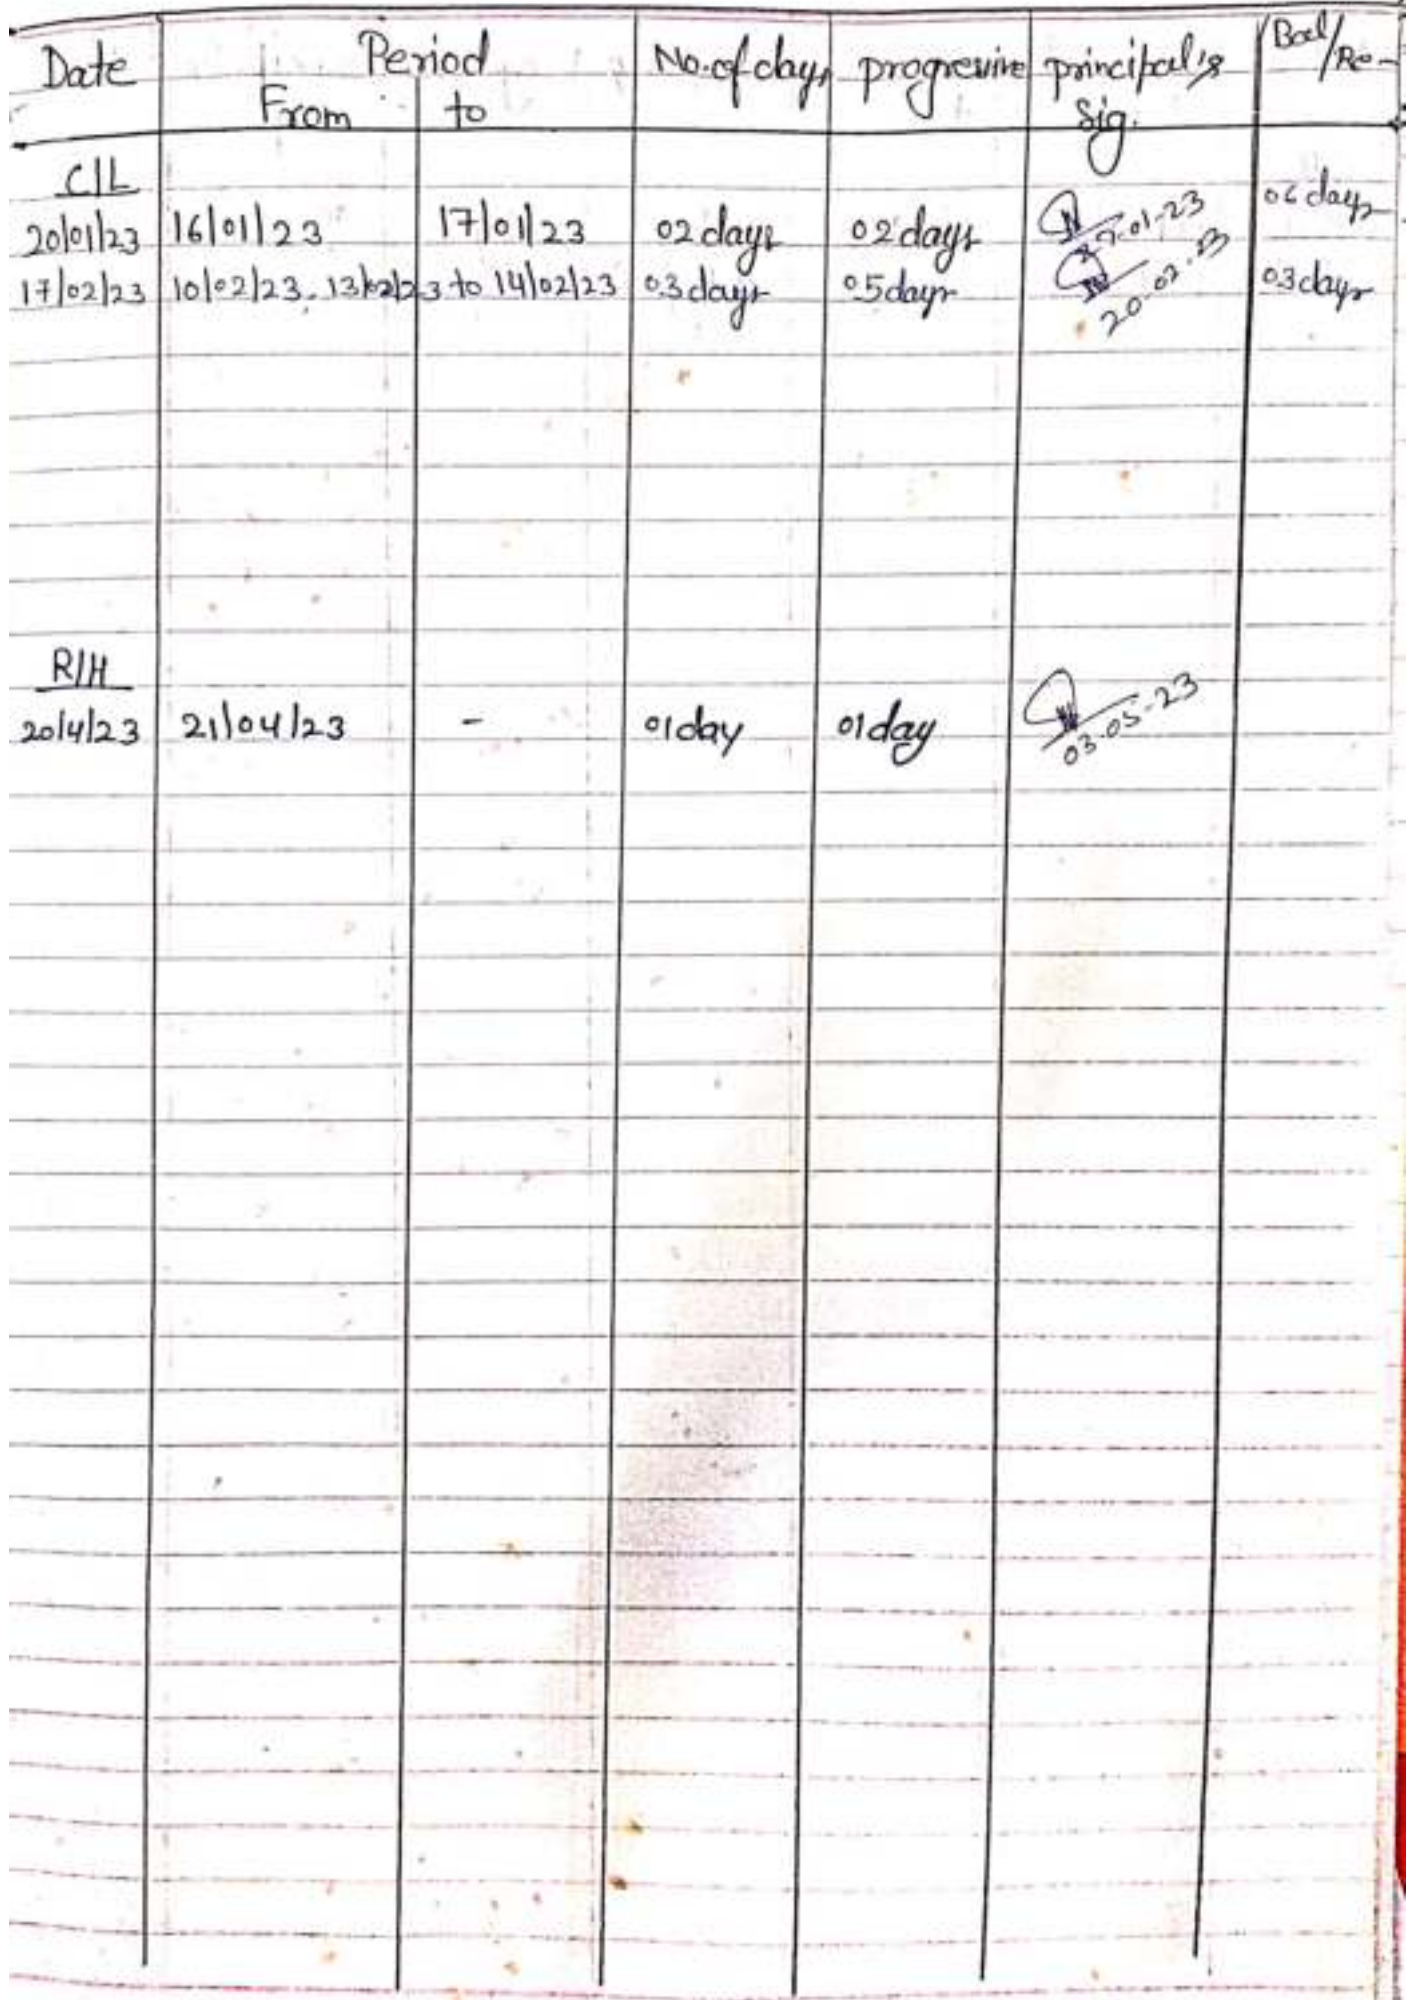 Date Period No. of days progressive principal's Bal/Re-
From to Sig.
C/L
20/01/23 16/01/23 17/01/23 02 days 02 days 06 days
-01-23
17/02/23 10/02/23, 13/02/23 to 14/02/23 03 days 05 days 20-02-23 03 days
R/H
20/4/23 21/04/23 - 01 day 01 day 03-05-23